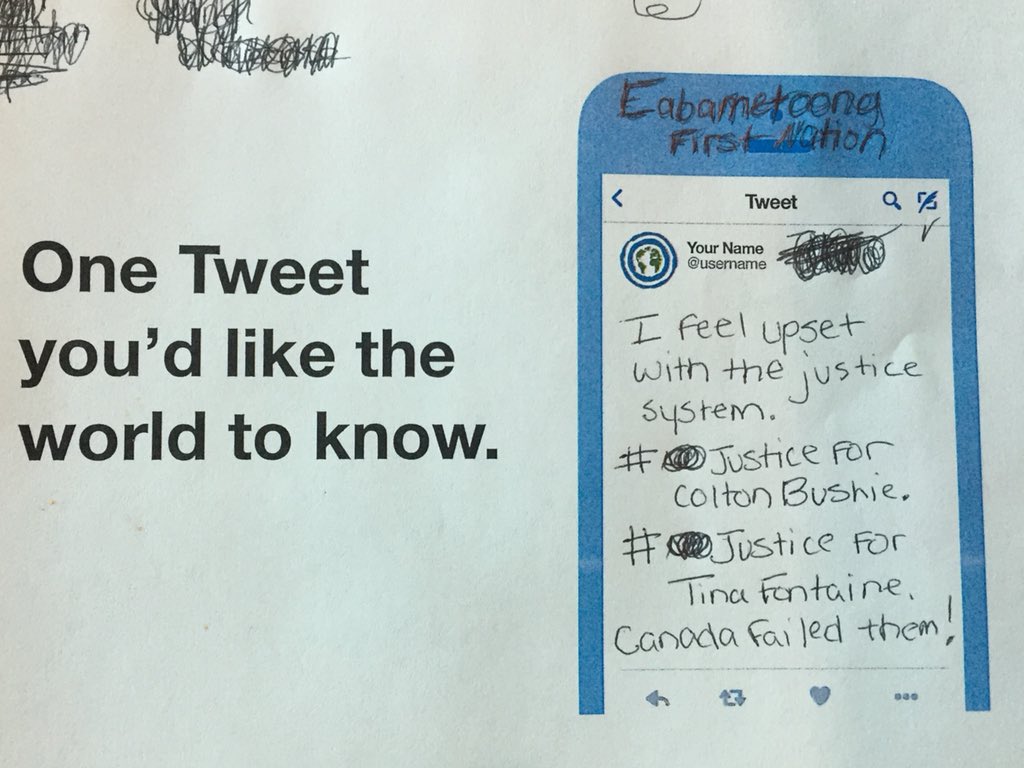 One Tweet
you'd like the
world to know.
Eabametoong
First Nation
Tweet
Your Name
@username
I feel upset
with the justice
system.
# Justice For
Colton Bushie.
# Justice For
Tina Fontaine.
Canada Failed them!